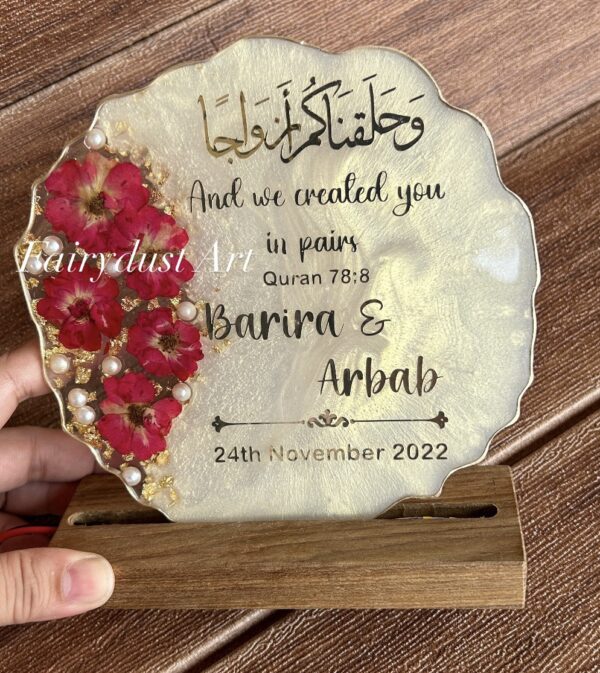 وَخَلَقنَاكُم أَزوَاجًا
And we created you
in pairs
Quran 78:8
Fairydust Art
Barira &
Arbab
24th November 2022